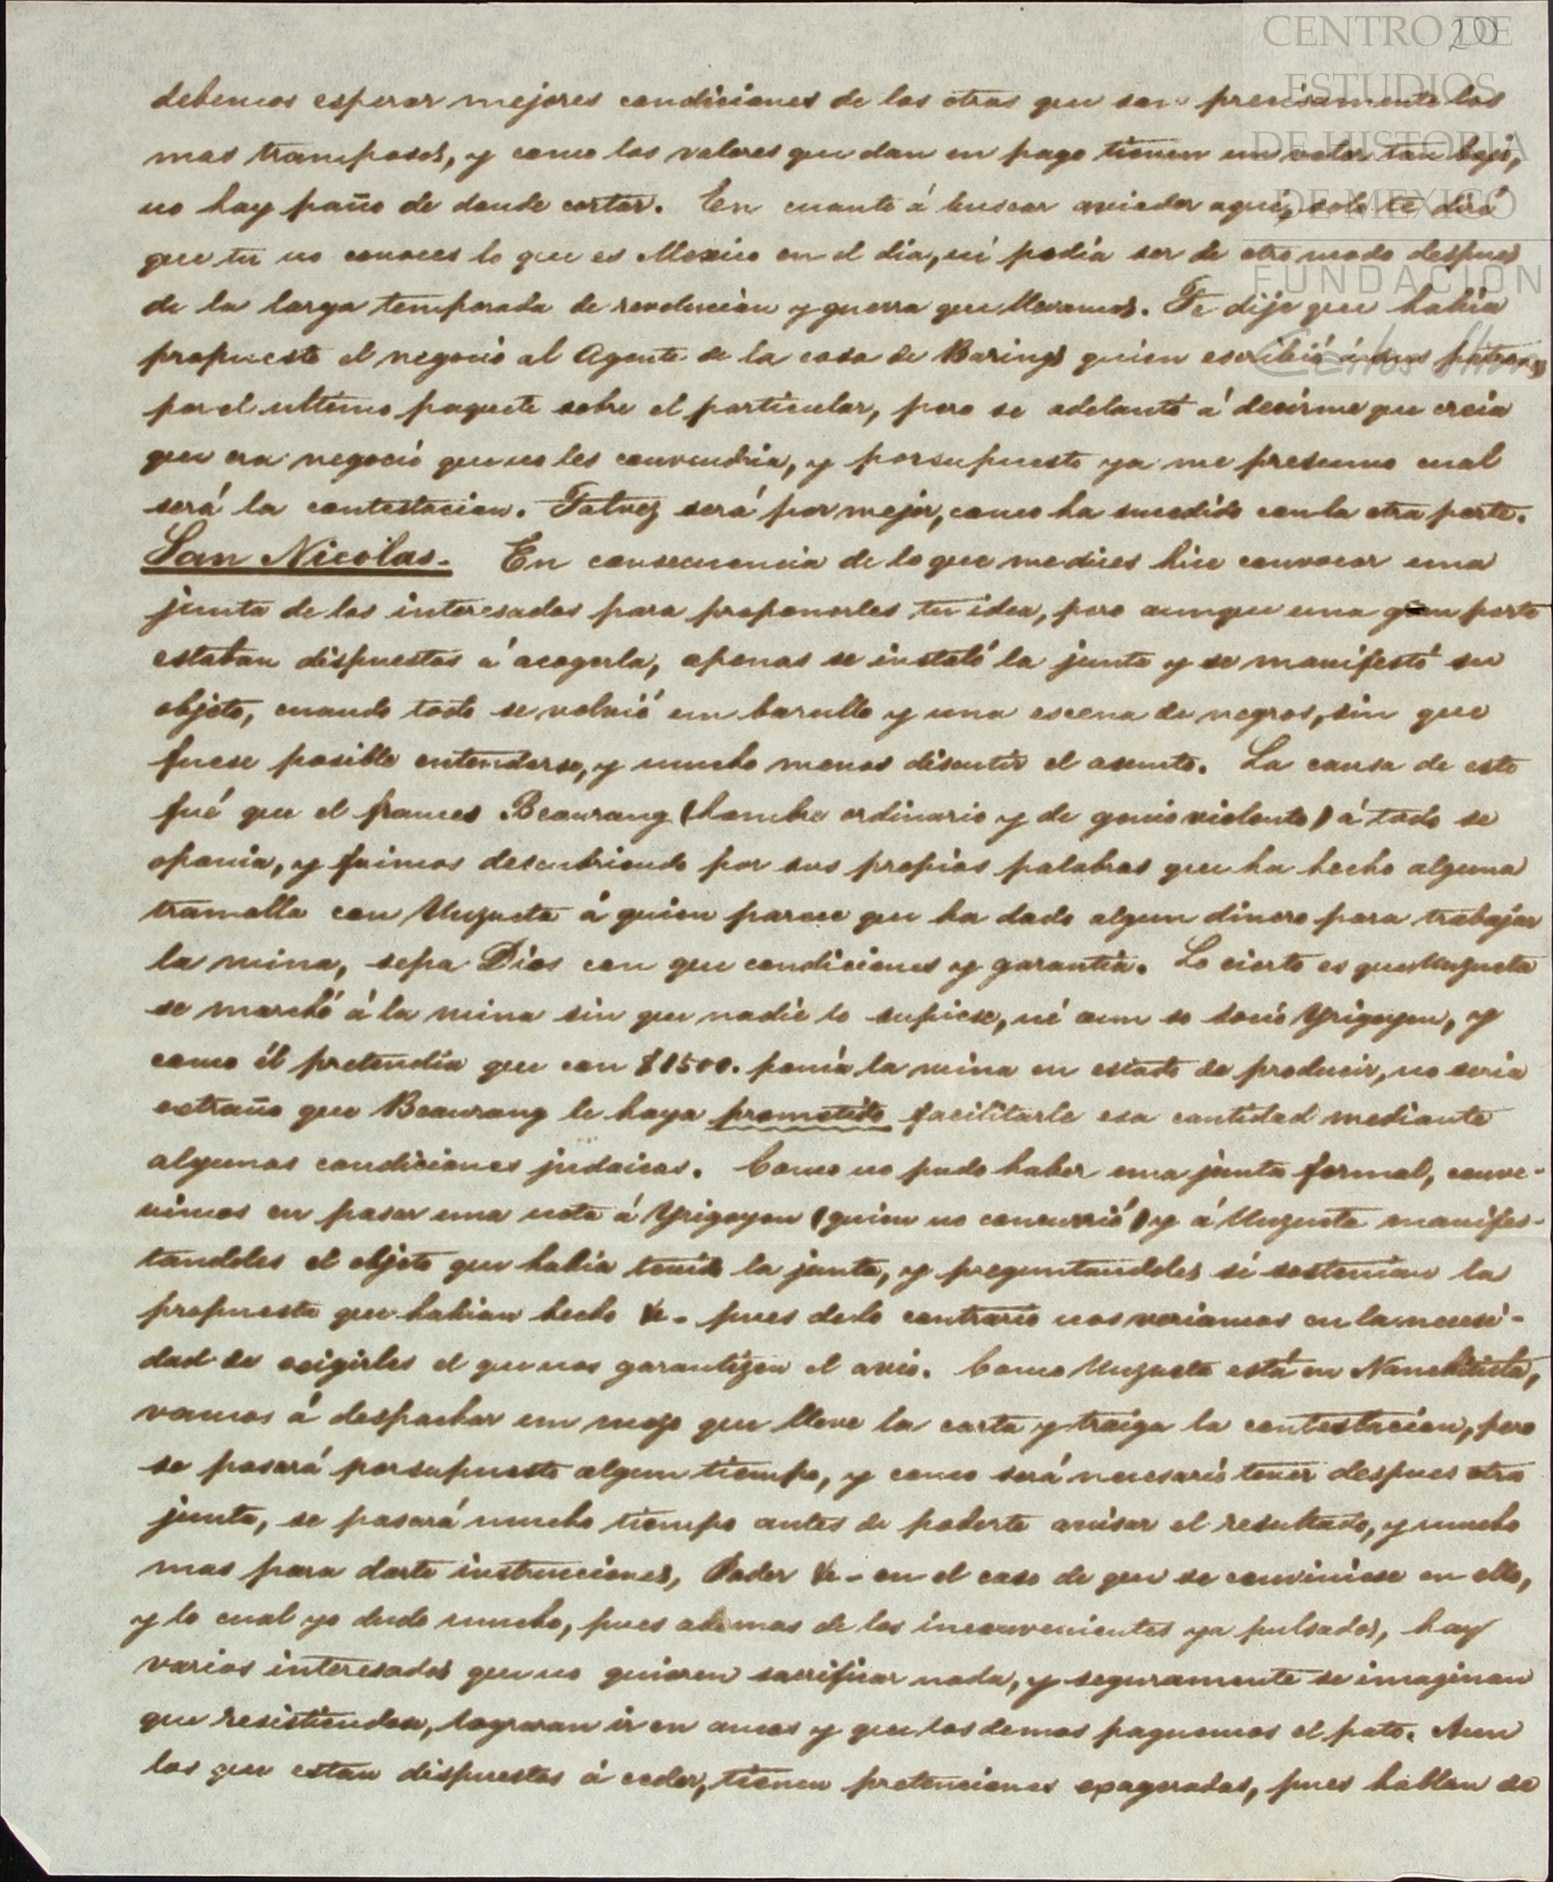 20
CENTRO DE
ESTUDIOS
DE HISTORIA
DE MEXICO
FUNDACIÓN
Carlos Slim
debemos esperar mejores condiciones de los otros que son precisamente los
mas tramposos, y como los valores que dan en pago tienen un valor tan bajo,
no hay paño de donde cortar. En cuanto á buscar aviador aquí, solo te diré
que tu no conoces lo que es Mexico en el dia, ni podia ser de otro modo despues
de la larga temporada de revolucion y guerra que llevamos. Te dije que habia
propuesto el negocio al Agente de la casa de Barings quien escribió á sus patrones
por el ultimo paquete sobre el particular, pero se adelantó á decirme que creia
que era negocio que no les convendria, y por supuesto ya me presumo cual
será la contestacion. Talvez será por mejor, como ha sucedido con la otra parte.
San Nicolas. En consecuencia de lo que me dices hice convocar una
junta de los interesados para proponerles tu idea, pero aunque una gran parte
estaban dispuestos á acogerla, apenas se instaló la junta y se manifestó su
objeto, cuando todo se volvió un barullo y una escena de negros, sin que
fuese posible entenderse, y mucho menos discutir el asunto. La causa de esto
fué que el frances Beaurang (hombre ordinario y de genio violento) á todo se
oponia, y fuimos descubriendo por sus propias palabras que ha hecho alguna
tramolla con Unzueta á quien parece que ha dado algun dinero para trabajar
la mina, sepa Dios con que condiciones y garantia. Lo cierto es que Unzueta
se marchó á la mina sin que nadie lo supiese, ni aun su socio Yrigoyen, y
como él pretendia que con $1500. ponia la mina en estado de producir, no seria
extraño que Beaurang le haya prometido facilitarle esa cantidad mediante
algunas condiciones judaicas. Como no pudo haber una junta formal, conve-
nimos en pasar una nota á Yrigoyen (quien no concurrió) y á Unzueta manifes-
tandoles el objeto que habia tenido la junta, y preguntandoles si sostenian la
propuesta que habian hecho &c. pues de lo contrario nos veriamos en la necesi-
dad de exigirles el que nos garantizen el avio. Como Unzueta está en Nanchititla,
vamos á despachar un mozo que lleve la carta y traiga la contestacion, pero
se pasará por supuesto algun tiempo, y como será necesario tener despues otra
junta, se pasará mucho tiempo antes de poderte avisar el resultado, y mucho
mas para darte instrucciones, Poder &c. en el caso de que se conviniese en ello,
y lo cual yo dudo mucho, pues ademas de los inconvenientes ya pulsados, hay
varios interesados que no quieren sacrificar nada, y seguramente se imaginan
que resistiendose, lograran ir en ancas y que los demas paguemos el pato. Aun
los que estan dispuestos á ceder, tienen pretenciones exageradas, pues hablan de